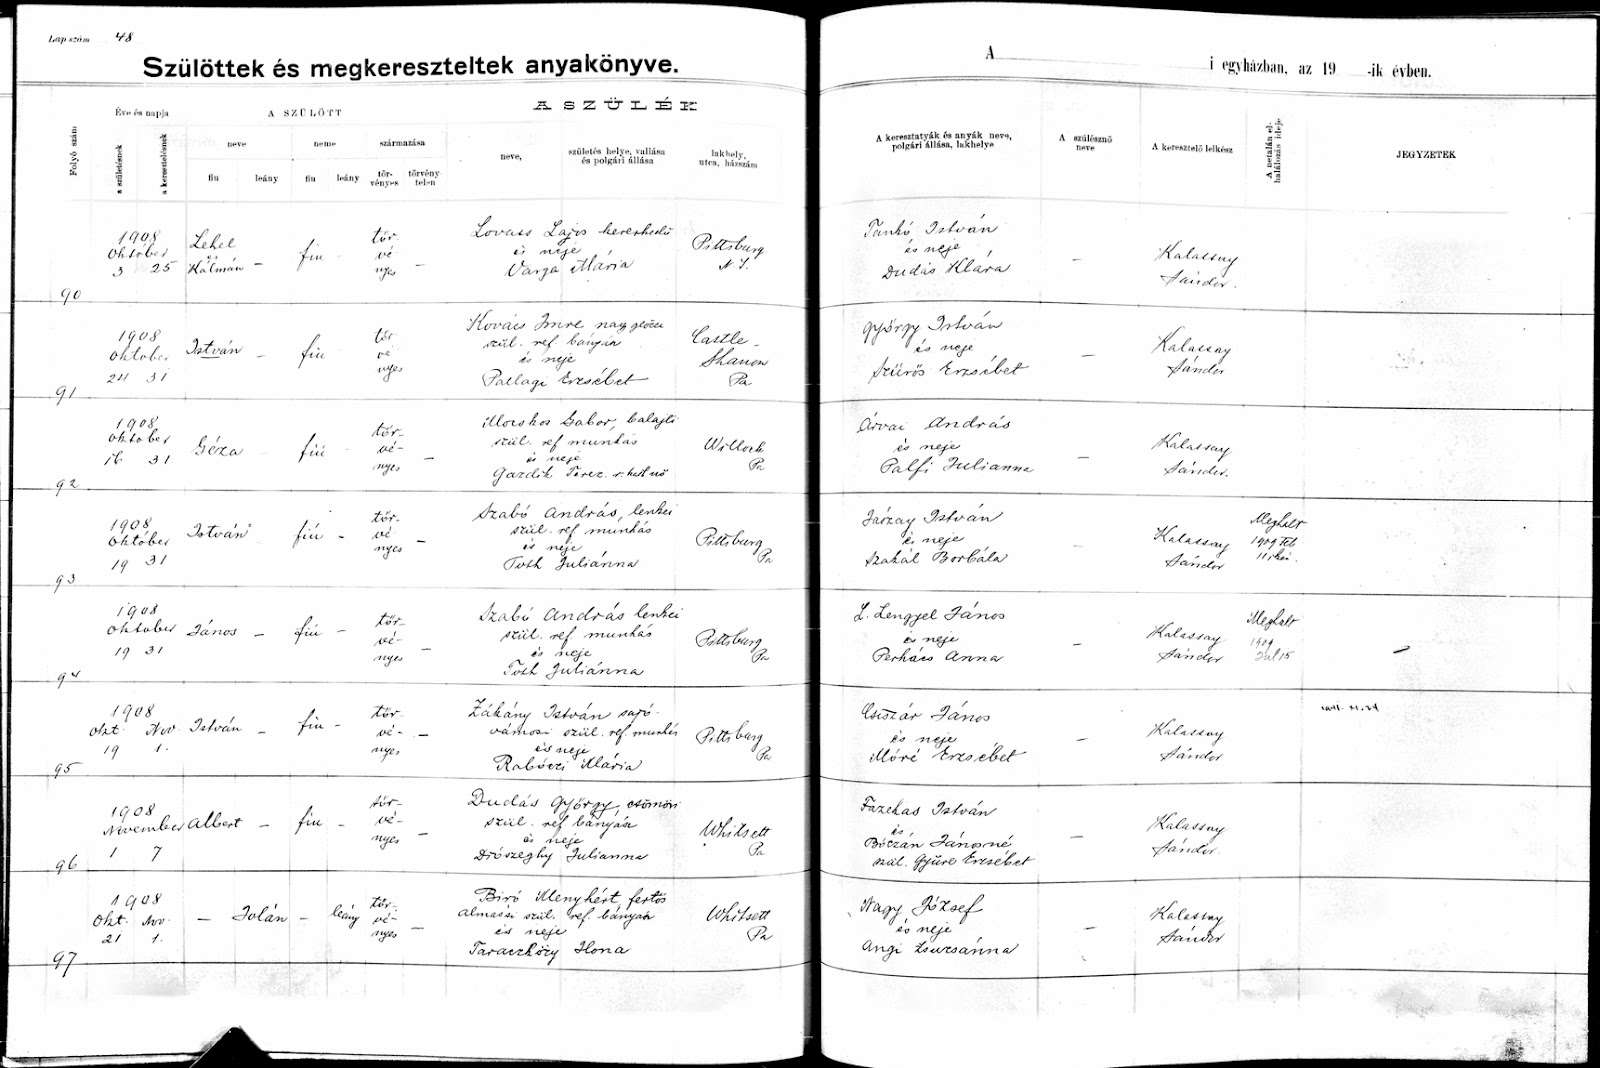 Lap szám 48
Szülöttek és megkereszteltek anyakönyve.
Folyó szám
Éve és napja
a születésnek
a keresztelésnek
A SZÜLÖTT
neve
fiu
leány
neme
fiu
leány
származása
törvényes
törvénytelen
A SZÜLÉK
neve,
születés helye, vallása
és polgári állása
lakhely,
utca, házszám
90
1908
Október
3 25
Lehel
és
Kálmán –
fiu
tör-
vé-
nyes –
Lovass Lajos kereskedő
és neje
Varga Mária
Pittsburg
91
1908
Október
24 31
István –
fiu
tör-
vé-
nyes
Kovács Imre
szül. ref. bányász
és neje
Pallagi Erzsébet
Castle-
Shanon
Pa
92
1908
Október
16 31
Géza –
fiú
tör-
vé-
nyes –
Mocskos Gábor, balajti
szül. ref munkás
és neje
Gazdik Terez
Willock
Pa
93
1908
Október
19 31
István
fiú –
tör-
vé-
nyes –
Szabó András, lenkei
szül. ref munkás
és neje
Toth Juliánna
Pittsburg
Pa
94
1908
Október
19 31
János –
fiú –
tör-
vé-
nyes –
Szabó András lenkei
szül. ref munkás
és neje
Toth Juliánna
Pittsburg
Pa
95
1908
Okt. Nov.
19 1.
István –
fiu –
tör-
vé-
nyes –
Zákány István sajó-
vámosi szül. ref. munkás
és neje
Rabóczi Mária
Pittsburg
Pa
96
1908
November
1 7
Albert –
fiu –
tör-
vé-
nyes –
Dudás György
szül. ref bányász
és neje
Drószeghy Julianna
Whitsett
Pa
97
1908
Okt. Nov.
21 1.
– Jolán –
leány
tör-
vé-
nyes –
Biró Menyhért, fertős
almási szül. ref. bányász
és neje
Taraczközy Ilona
Whitsett
Pa
A i egyházban, az 19 -ik évben.
A keresztatyák és anyák neve,
polgári állása, lakhelye
A szülésznő
neve
A keresztelő lelkész
A netalán el-
halálozás ideje
JEGYZETEK
Tankó István
és neje
Dudás Klára
–
Kalassay
Sándor.
György István
és neje
Szürös Erzsébet
–
Kalassay
Sándor
Árvai András
és neje
Palfi Julianna
–
Kalassay
Sándor.
Jászay István
és neje
Szakál Borbála
–
Kalassay
Sándor
Meghalt
1909 Feb
11
L. Lengyel János
és neje
Perhács Anna
–
Kalassay
Sándor
Meghalt
1909
Jul 15
Csiszár János
és neje
Móré Erzsébet
–
Kalassay
Sándor
Fazekas István
és
Bóczán Jánosné
szül. Gyüre Erzsébet
–
Kalassay
Sándor.
Nagy József
és neje
Angi Zsuzsánna
–
Kalassay
Sándor